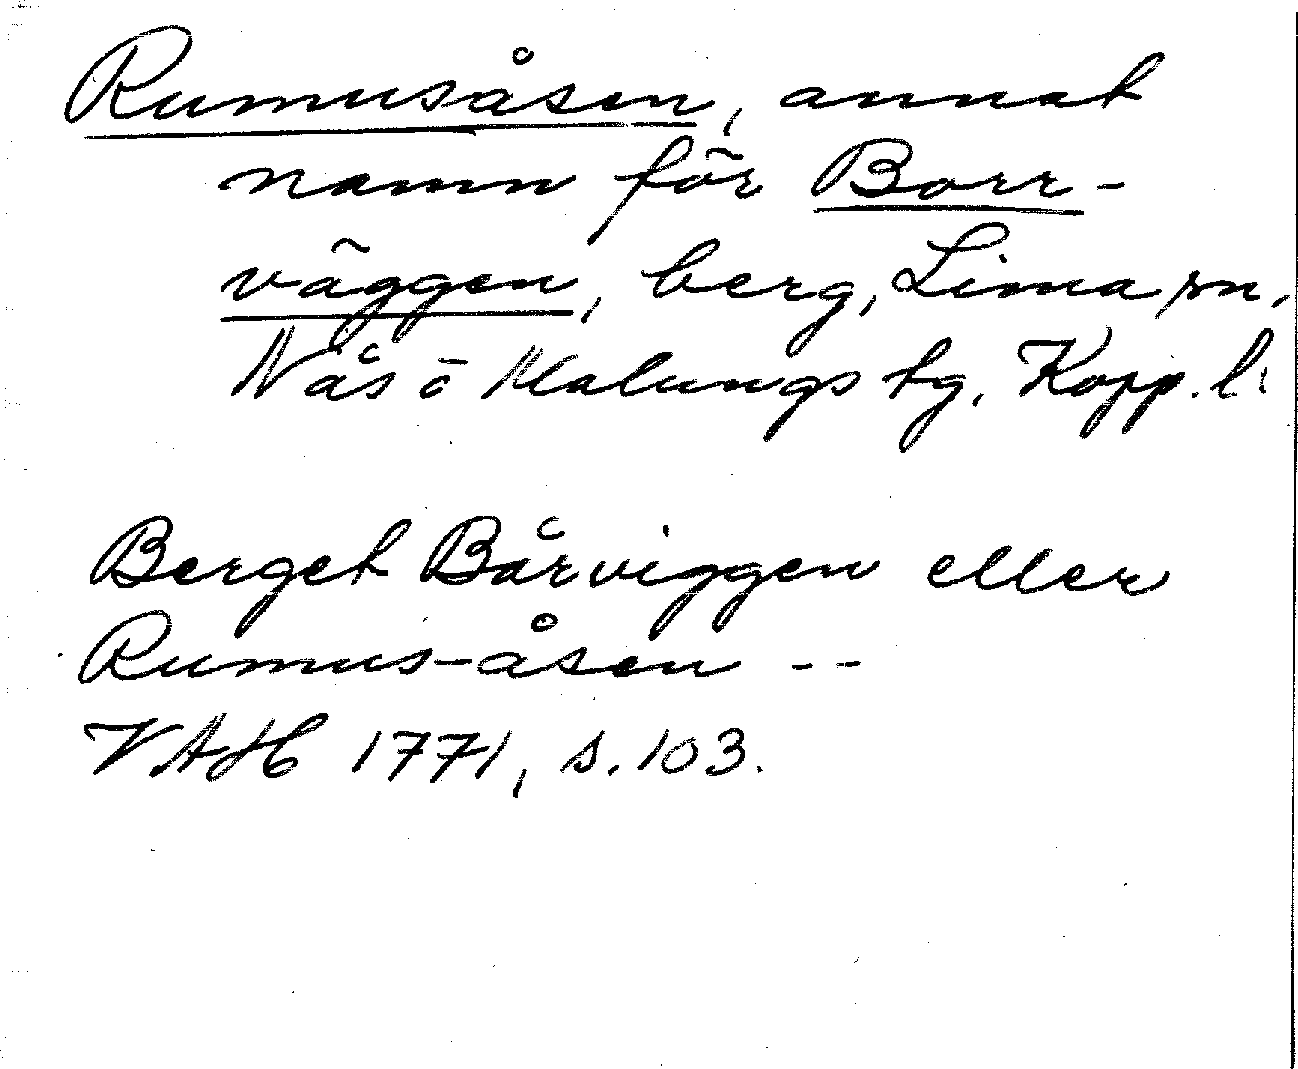 Rumusåsen, annat
namn för Borr-
väggen, berg, Lima sn,
Nås o Malungs tg. Kopp. l.
Berget Bårviggen eller
Rumus-åsen --
VAH 1771, s. 103.